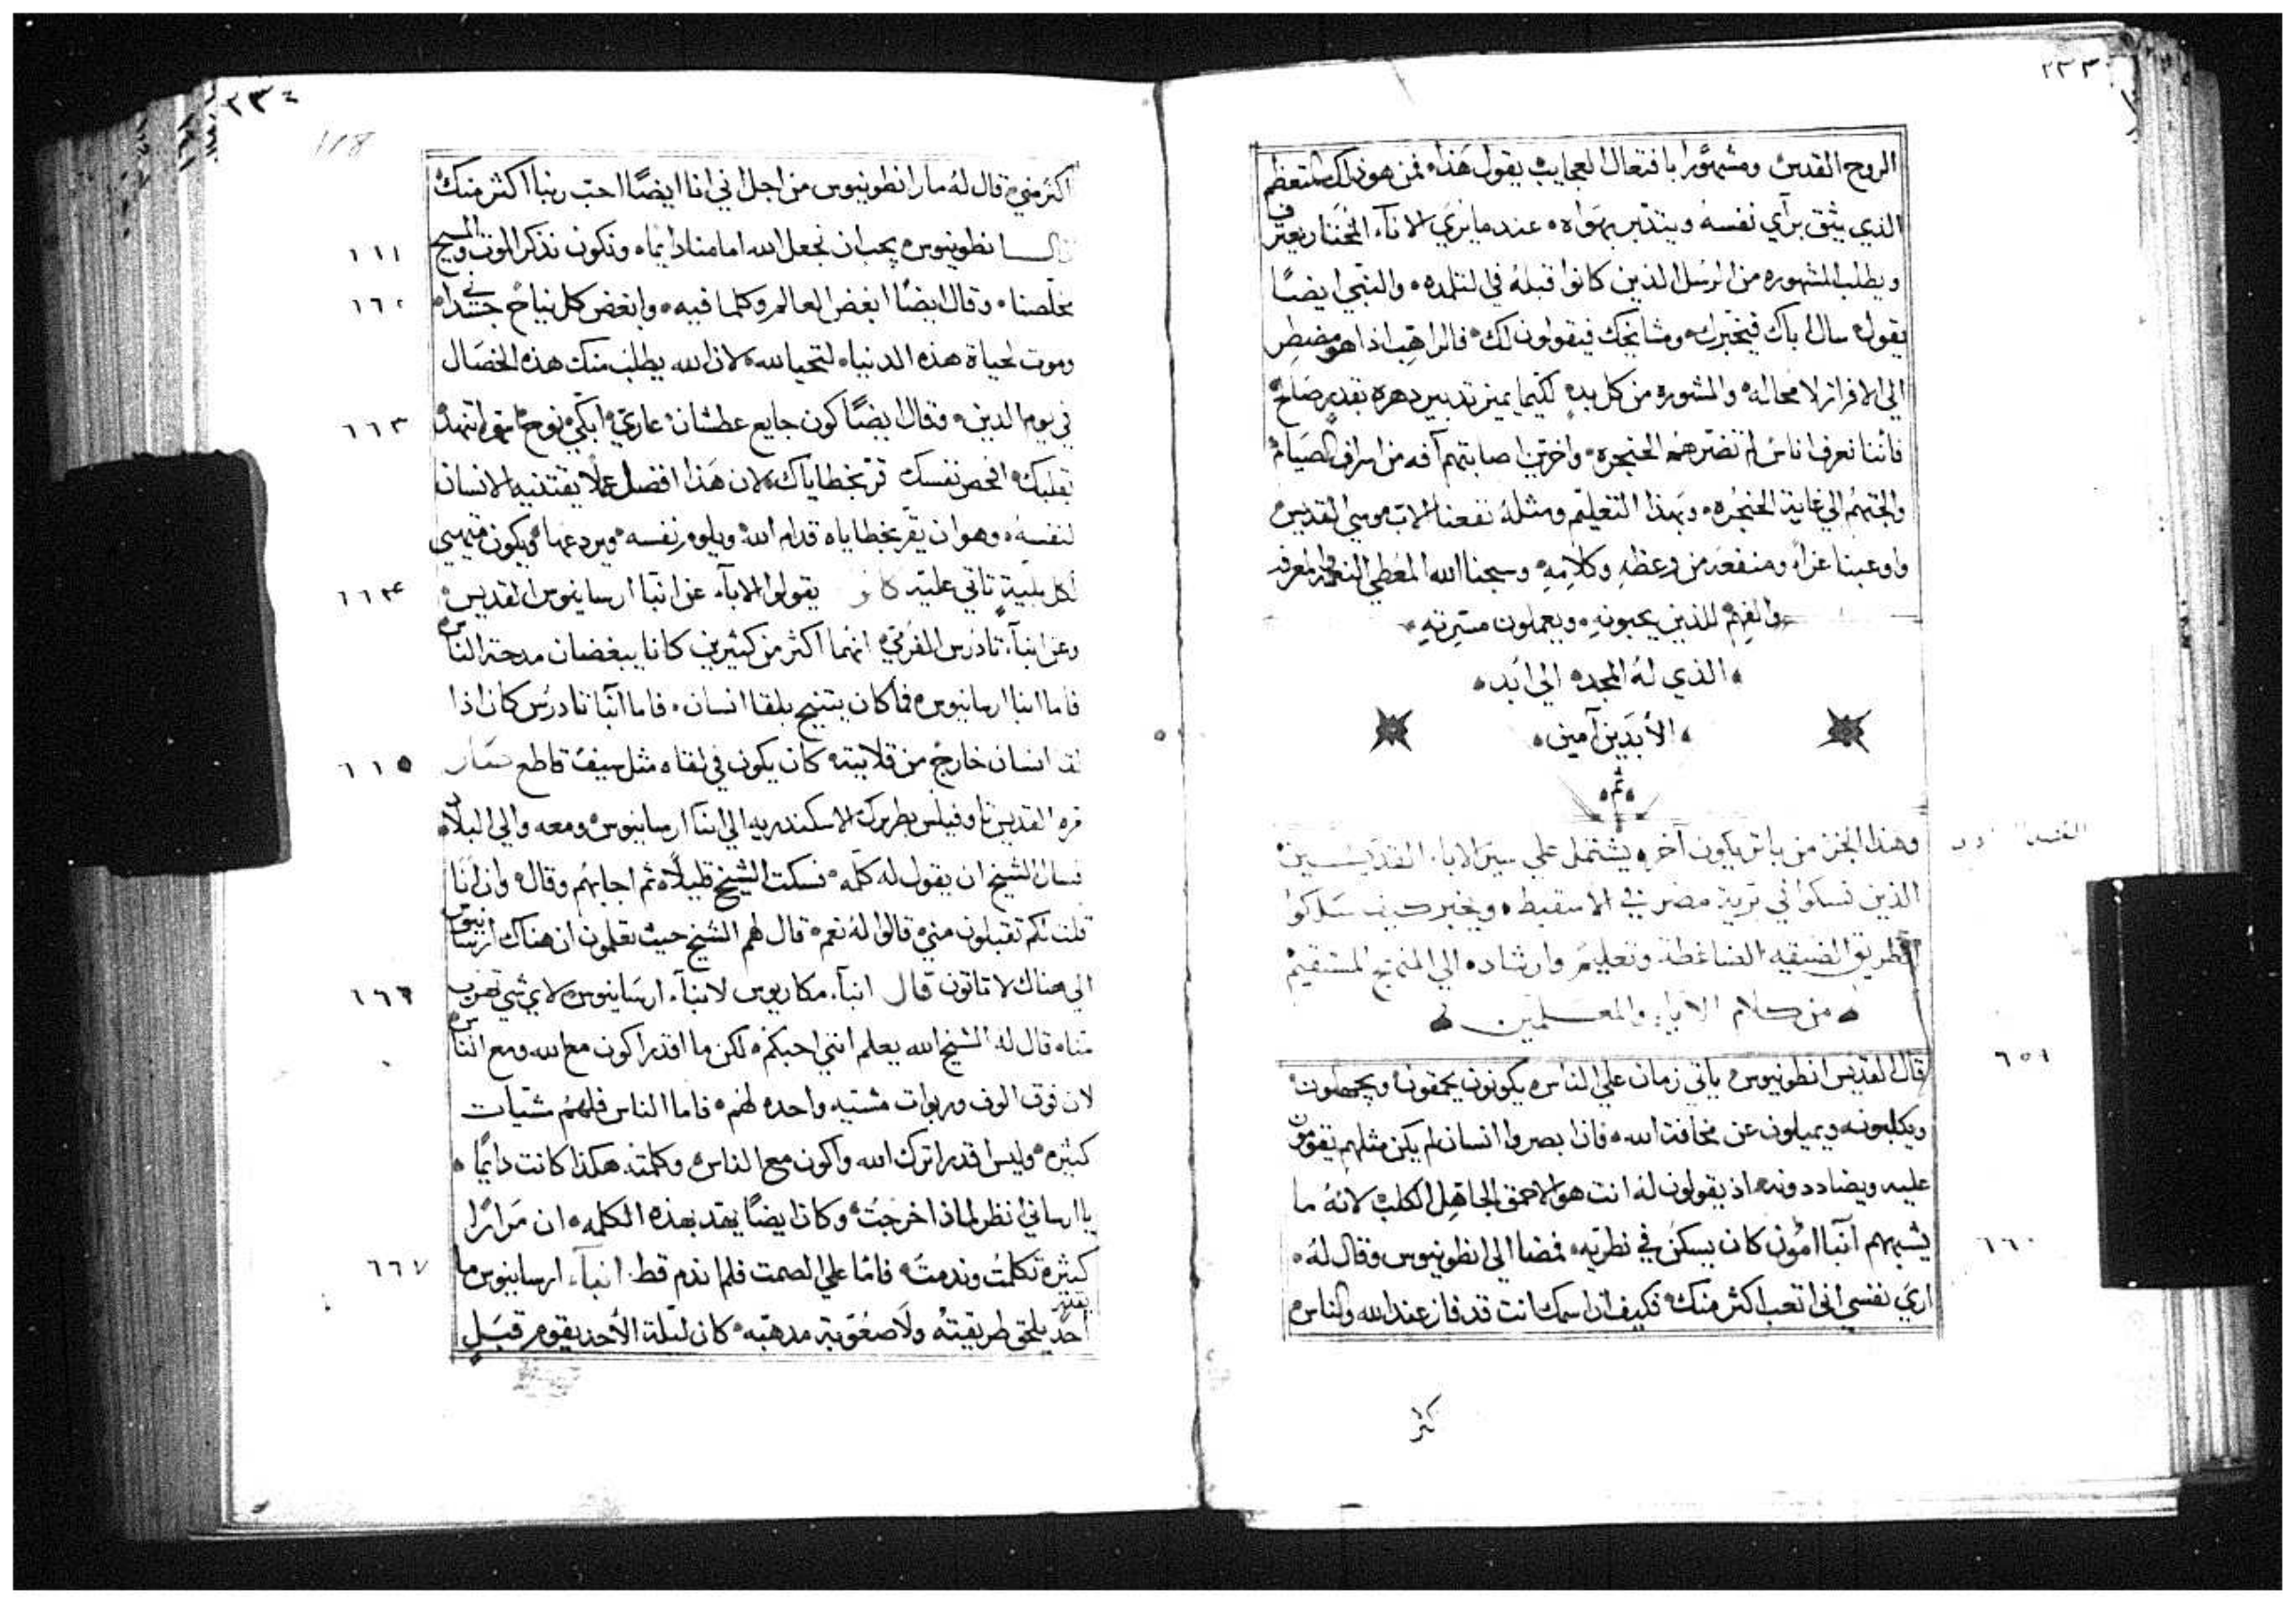 ٢٣٣
الروح القدس ومشهورا بافتعال العجايب يقول هذا فمن هو ذاك المتعظم
الذي يثق برآي نفسه ويتدبر بهواه عند ما نري الانآء المختار يعترف
ويطلب المشهوره من الرسل الذين كانوا قبله في التلمده والنبي ايضًا
يقول سال اباك فيخبرك ومشايخك فيقولون لك فالراهب اذا هو مضطر
الي الافراز لا محاله والمشوره من كل بد لكيما يميز تدبير دهره بقدر صالح
فاننا نعرف اناس لم تضرهم الحنجره واخرين اصابتهم آفه من اسراف الصيام
والجتهم الي غاية الحنجره وبهذا التعليم ومثله نفعنا الاب موسي القديس
واوعبنا عزاً ومنفعه من وعظه وكلامه وسبحنا الله المعطي النعمه والمعرفه
والفهم للذين يحبونه ويعملون مسرته
الذي له المجد الي ابد
الأبدين آمين
تم
وهذا الجز من باتريكون آخر يشتمل علي سير الاباء القديسين
الذين نسكوا في برية مصر في الاسقيط ويخبر كيف سلكوا
الطريق الضيقه الضاغطه وتعليم وارشاده الي المنهج المستقيم
من كلام الاباء والمعلمين
٦٥٩
قال القديس انطونيوس ياتي زمان علي الناس يكونون يحمقون ويجهلون
ويكلبون ويميلون عن مخافة الله فاذا بصروا انسان لم يكن مثلهم يقومون
عليه ويضاددونه اذ يقولون له انت هو الاحمق الجاهل الكلب لانه ما
٦٦٠
يشبههم آنبا امون كان يسكن في نطريه فمضا الي انطونيوس وقال له
اري نفسي اني اتعب اكثر منك فكيف اذا اسمك انت قد فاز عند الله والناس
كثر
٢٣٤
118
اكثر مني قال له مار انطونيوس من اجل اني انا ايضًا احب ربنا اكثر منك
٦٦١
قال انطونيوس يجب ان نجعل الله امامنا دايمًا ونكون نذكر الموت والمسيح
٦٦٢
مخلصنا وقال ايضًا ابغض العالم وكلما فيه وابغض كل نياح جسداني
وموت لحياة هذه الدنيا لتحيا لله لان الله يطلب منك هذه الخصال
٦٦٣
في يوم الدين وقال ايضًا كون جايع عطشان عاري ابكي نوح اتنهد
بقلبك افحص نفسك قر بخطاياك لان هذا افضل عملاً يقتنيه الانسان
لنفسه وهو ان يقر بخطاياه قدام الله ويلوم نفسه ويردعها ويكون متهيي
٦٦٤
لكل بلية تاتي عليه كانو يقولوا الابآء عن انبا ارسانيوس القديس
وعن انبآ تادرس الفرمي انهما اكثر من كثيرين كانا يبغضان مدحة الناس
فاما انبا ارسانيوس فما كان يتنيح بلقا انسان فاما آنبا تادرس كان اذا
٦٦٥
لقا انسان خارج من قلايته كان يكون في لقاه مثل سيف قاطع سار
مره القديس تاوفيلس بطريرك الاسكندريه الي انبا ارسانيوس ومعه والي البلاد
فسال الشيخ ان يقول له كلمه فسكت الشيخ قليلاً ثم اجابهم وقال وان انا
قلت لكم تقبلون مني قالوا له نعم قال لهم الشيخ حيث تعلمون ان هناك ارسانيوس
٦٦٦
الي هناك لا تاتون قال انبآ مكاريوس لانبآ ارسانيوس لاي شي تهرب
منا قال له الشيخ الله يعلم انني احبكم لكن ما اقدر اكون مع الله ومع الناس
لان فوق الوف وربوات مشيه واحده لهم فاما الناس فلهم مشيات
كثيره وليس اقدر اترك الله واكون مع الناس وكلمته هكذا كانت دايمًا
يا ارساني انظر لماذا خرجت وكان ايضًا يعد بهذه الكلمه ان مرارًا
٦٦٧
كثيره تكلمت وندمت فامّا علي الصمت فلم اندم قط انبآء ارسانيوس ما
يقدر
احد يلحق طريقته ولا صعوبة مدهبه كان ليلة الأحد يقوم قبل